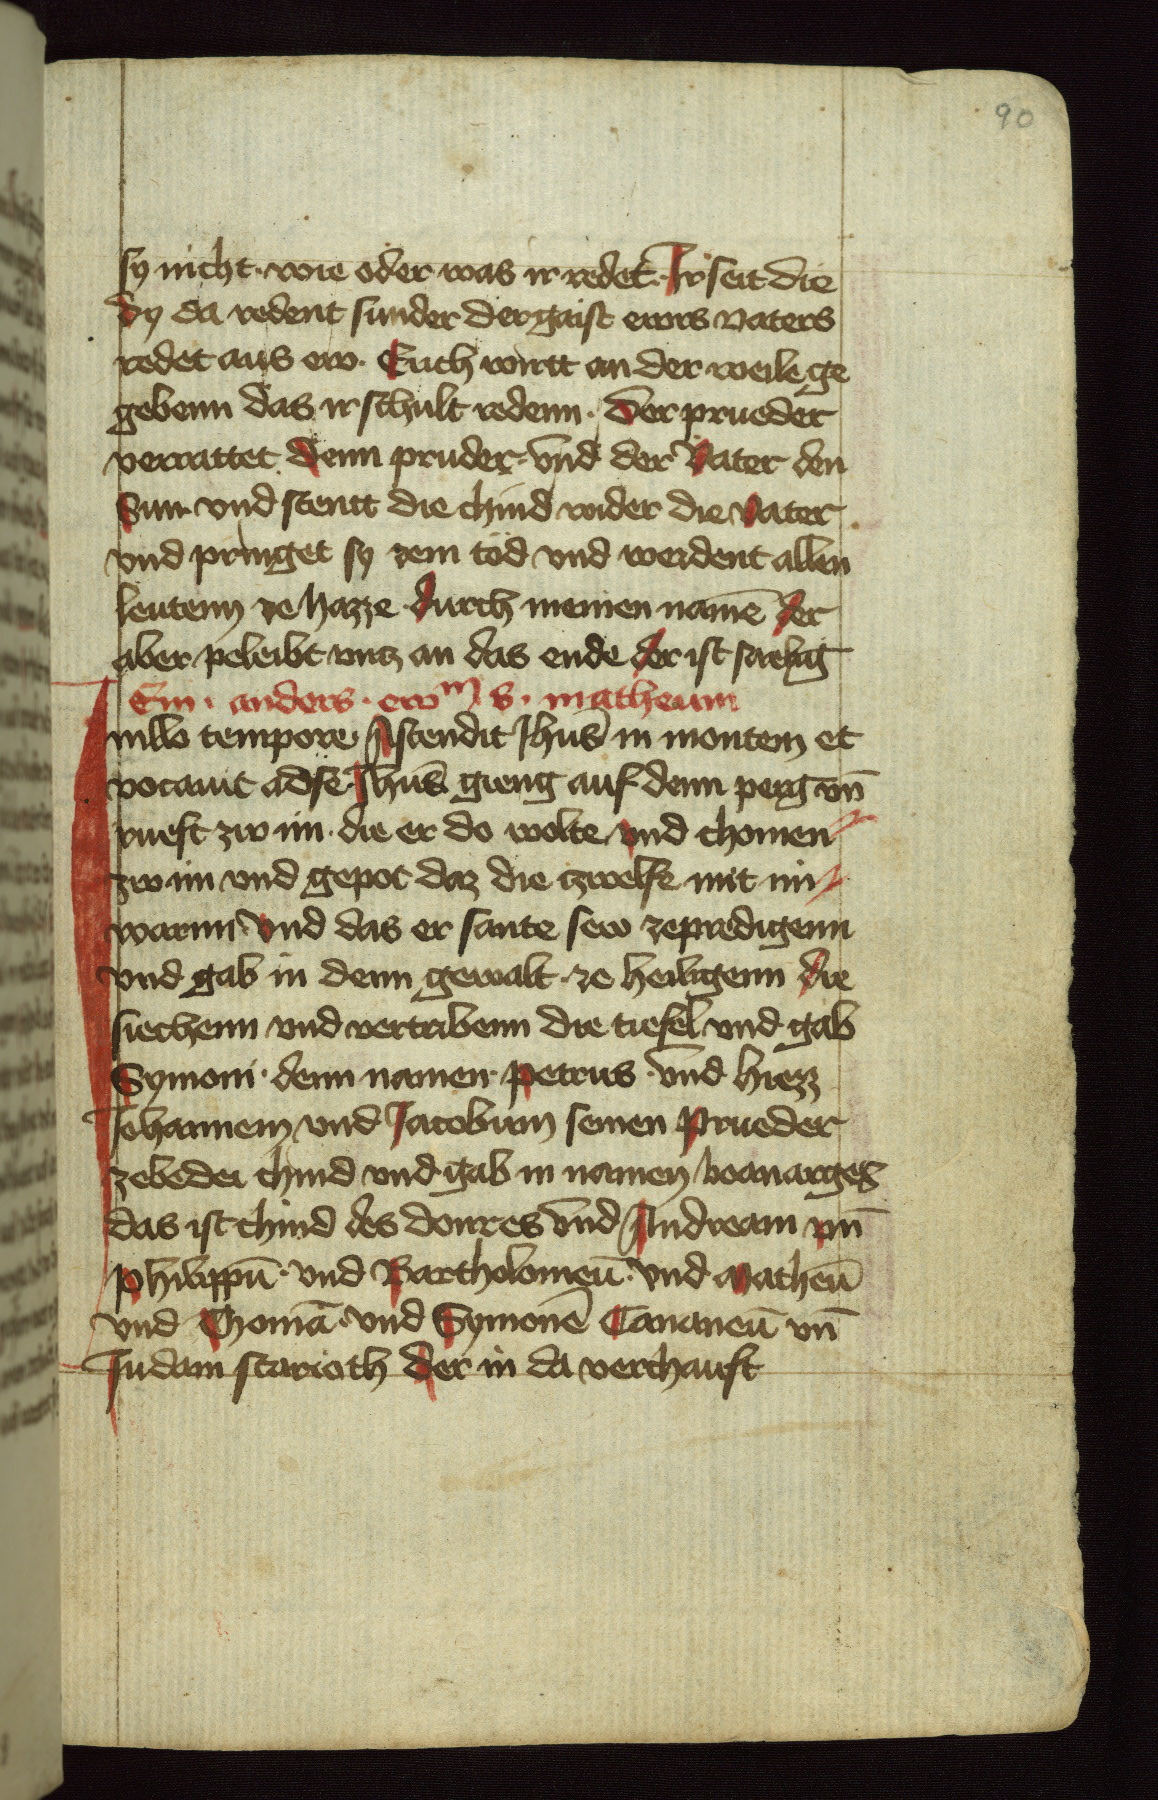 90
sy nicht · wie oder was ir redet · Ir seit die
dy da redent sunder der gaist ewrs vaters
redet aus ew · Euch wirtt an der weile ge
gebenn das ir schult redenn · Der prueder
verrattet denn pruder · vnd der Vater den
Sun · vnd stentt die chind wider die vater
vnd pringet sy zem tod vnd werdent allen
leutenn ze hazze durch meinen namē der
aber peleibt vntz an das ende der ist saelig
Ein · anders · ewm s · matheum
In illo tempore Ascendit Jhus̄ in montem et
vocauit ad se · Jhus̄ gieng auf denn perg vn̄
rueft zw im · die er do wolte vnd chomen
zw im vnd gepot daz die tzwelfe mit im
warnn vnd das er sante sew ze predigenn
vnd gab in denn gewalt · ze heiligenn die
siechenn vnd vertribenn die tiefel vnd gab
Symoni · denn namen · petrus · vnd hiezz
Johannem vnd Jacobum seinen prueder
zebedei chind vnd gab in namen boanarges
das ist chind des donres vnd Andream vn̄
philippū · vnd Bartholomeū · vnd matheū
vnd Thomā · vnd Symonē Cananeū vn̄
Judam scarioth der in da verchauft